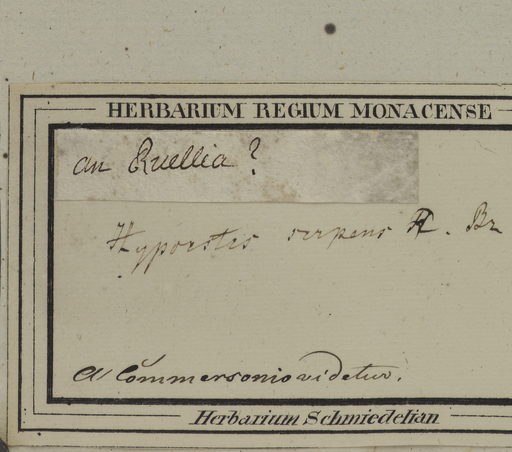 HERBARIUM REGIUM MONACENSE
an Ruellia?
Hypoestes serpens R. Br
a Commersonio videtur.
Herbarium Schmiedelian